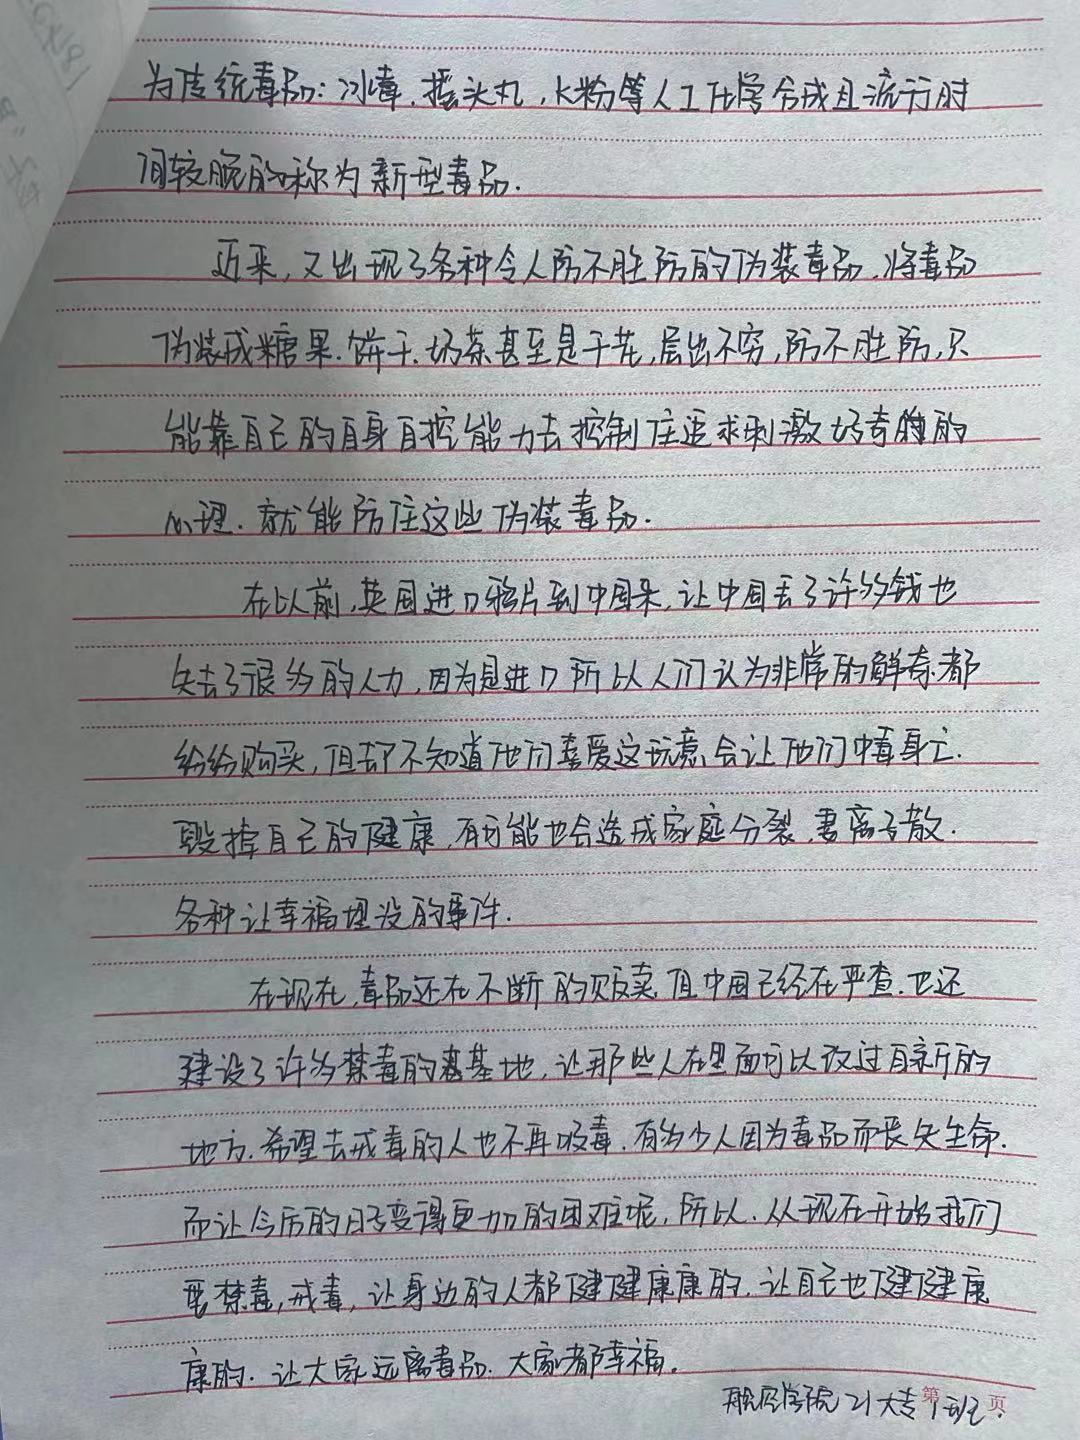 为传统毒品：冰毒、摇头丸、K粉等人工化学合成且流行时
间较晚的称为新型毒品.
近来,又出现了各种令人防不胜防的伪装毒品.将毒品
伪装成糖果.饼干.奶茶甚至是干花,层出不穷,防不胜防,只
能靠自己的自身自控能力去控制住追求刺激好奇的
心理.就能防住这些伪装毒品.
在以前,英国进口鸦片到中国来,让中国丢了许多钱也
失去了很多的人力,因为是进口所以人们认为非常的解泰都
纷纷购买,但却不知道他们喜爱这玩意会让他们中毒身亡.
毁掉自己的健康,有可能也会造成家庭分裂.妻离子散.
各种让幸福埋没的事件.
在现在,毒品还在不断的贩卖但中国已经在严查.也还
建设了许多禁毒的基地,让那些人在里面可以改过自新的
地方.希望去戒毒的人也不再吸毒.有多少人因为毒品而丧失生命.
而让今后的日子变得更加的困难呢,所以.从现在开始我们
要禁毒,戒毒,让身边的人都健健康康的.让自己也健健康
康的.让大家远离毒品.大家都幸福。
学院21大专1班
第 页